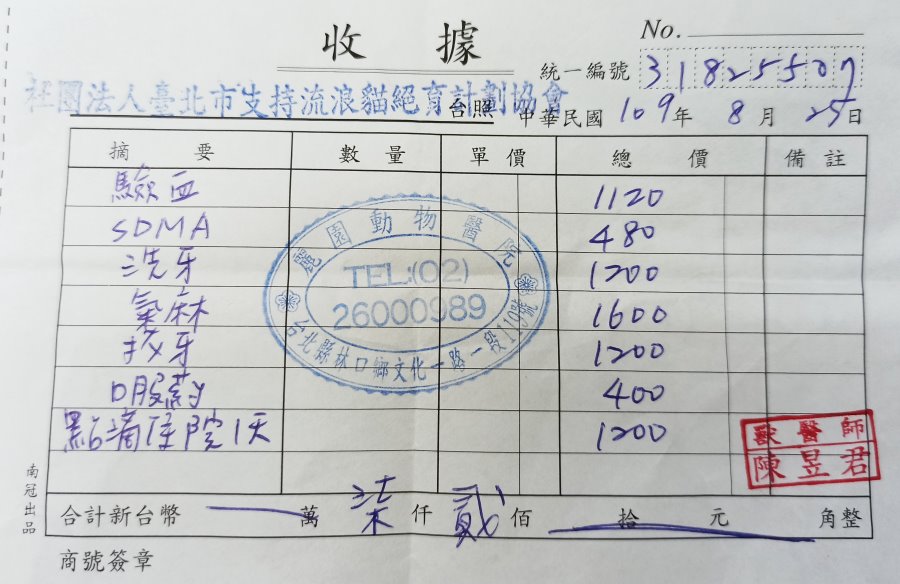 收據
No.
統一編號 31825507
社團法人臺北市支持流浪貓絕育計劃協會
台照 中華民國 109年 8月 25日
摘要 數量 單價 總價 備註
驗血 1120
SDMA 480
洗牙 1200
氣麻 1600
拔牙 1200
口服葯 400
點滴住院1天 1200
麗園動物醫院
TEL:(02)
26000989
台北縣林口鄉文化一路一段110號
獸醫師
陳昱君
合計新台幣 萬 柒仟 貳佰 拾 元 角整
商號簽章
南冠出品